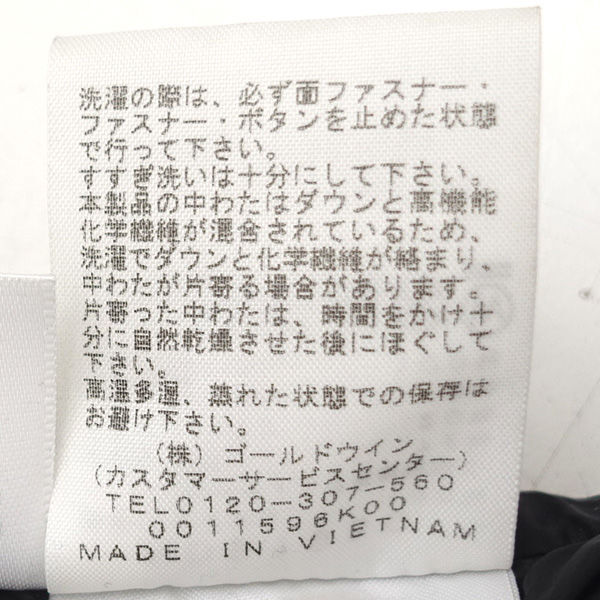 洗濯の際は、必ず面ファスナー・
ファスナー・ボタンを止めた状態
で行って下さい。
すすぎ洗いは十分にして下さい。
本製品の中わたはダウンと高機能
化学繊維が混合されているため、
洗濯でダウンと化学繊維が絡まり、
中わたが片寄る場合があります。
片寄った中わたは、時間をかけ十
分に自然乾燥させた後にほぐして
下さい。
高温多湿、蒸れた状態での保存は
お避け下さい。
(株) ゴールドウイン
(カスタマーサービスセンター)
TEL0120-307-560
0011596K00
MADE IN VIETNAM